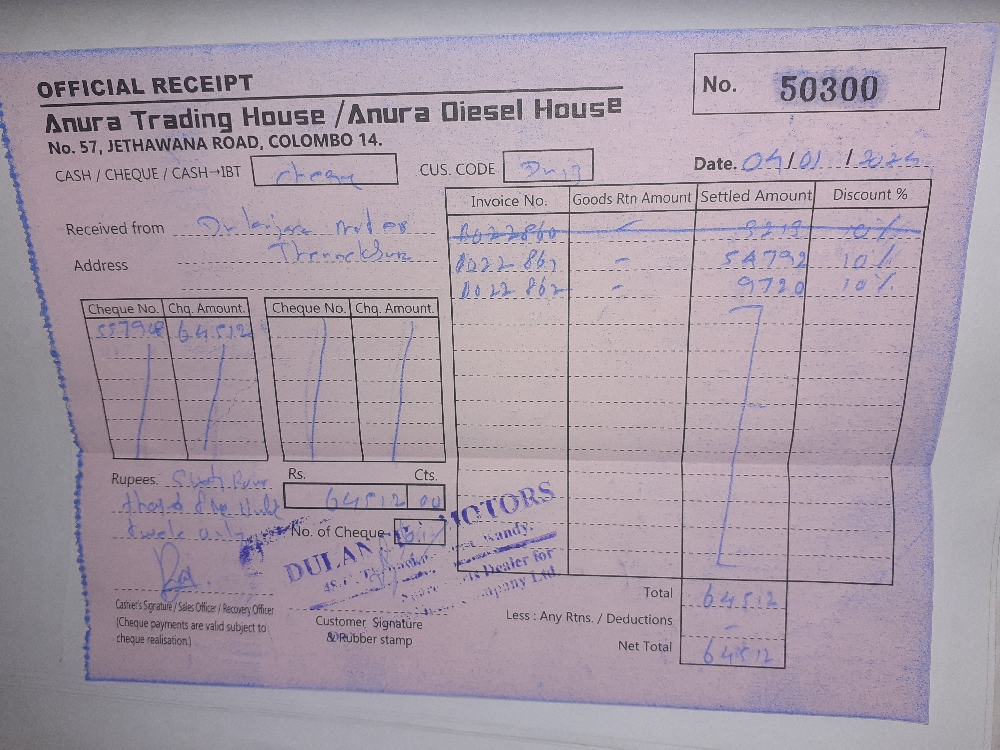 OFFICIAL RECEIPT
No. 50300
Anura Trading House / Anura Diesel House
No. 57, JETHAWANA ROAD, COLOMBO 14.
CASH / CHEQUE / CASH→IBT cheque
CUS. CODE
Date. 04/01/2024
Received from
Address
Invoice No. Goods Rtn Amount Settled Amount Discount %
B022860 - 9219 10%
B022861 - 54792 10%
B022862 - 9720 10%
Cheque No. Chq. Amount. Cheque No. Chq. Amount.
557908 64512
Rupees. Sixty Four
thousand five
twele only
Rs. Cts.
64512 00
No. of Cheque
DULAN MOTORS
Kandy.
Dealer for
Company Ltd
Cashier's Signature / Sales Officer / Recovery Officer
(Cheque payments are valid subject to
cheque realisation.)
Customer Signature
& Rubber stamp
Total 64512
Less : Any Rtns. / Deductions -
Net Total 64512